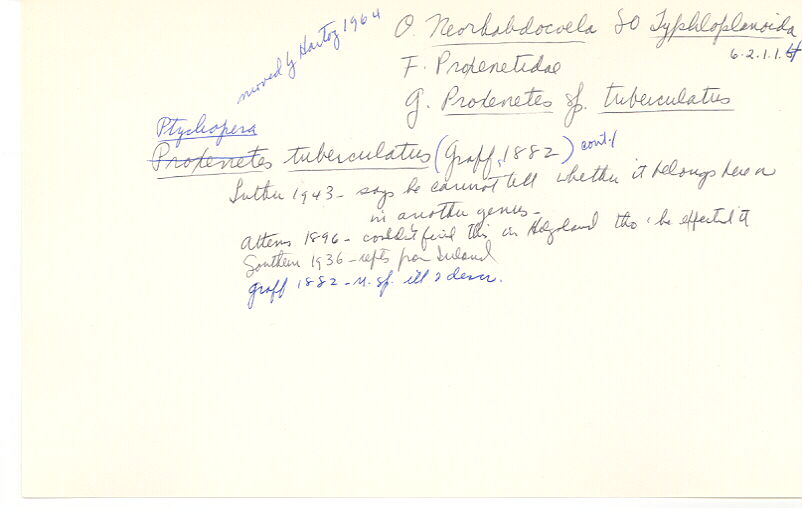 moved by Hartog 1964
O. Neorhabdocoela SO Typhloplanoida
6.2.1.1.
F. Proxenetidae
G. Proxenetes sp. tuberculatus
Ptychopera
Proxenetes tuberculatus (Graff, 1882) cont./
Luther 1943 - says he cannot tell whether it belongs here or
in another genus -
Attems 1896 - couldn't find this in Helgoland tho' he expected it
Southern 1936 - repts from Ireland
Graff 1882 - n. sp. ill & descr.